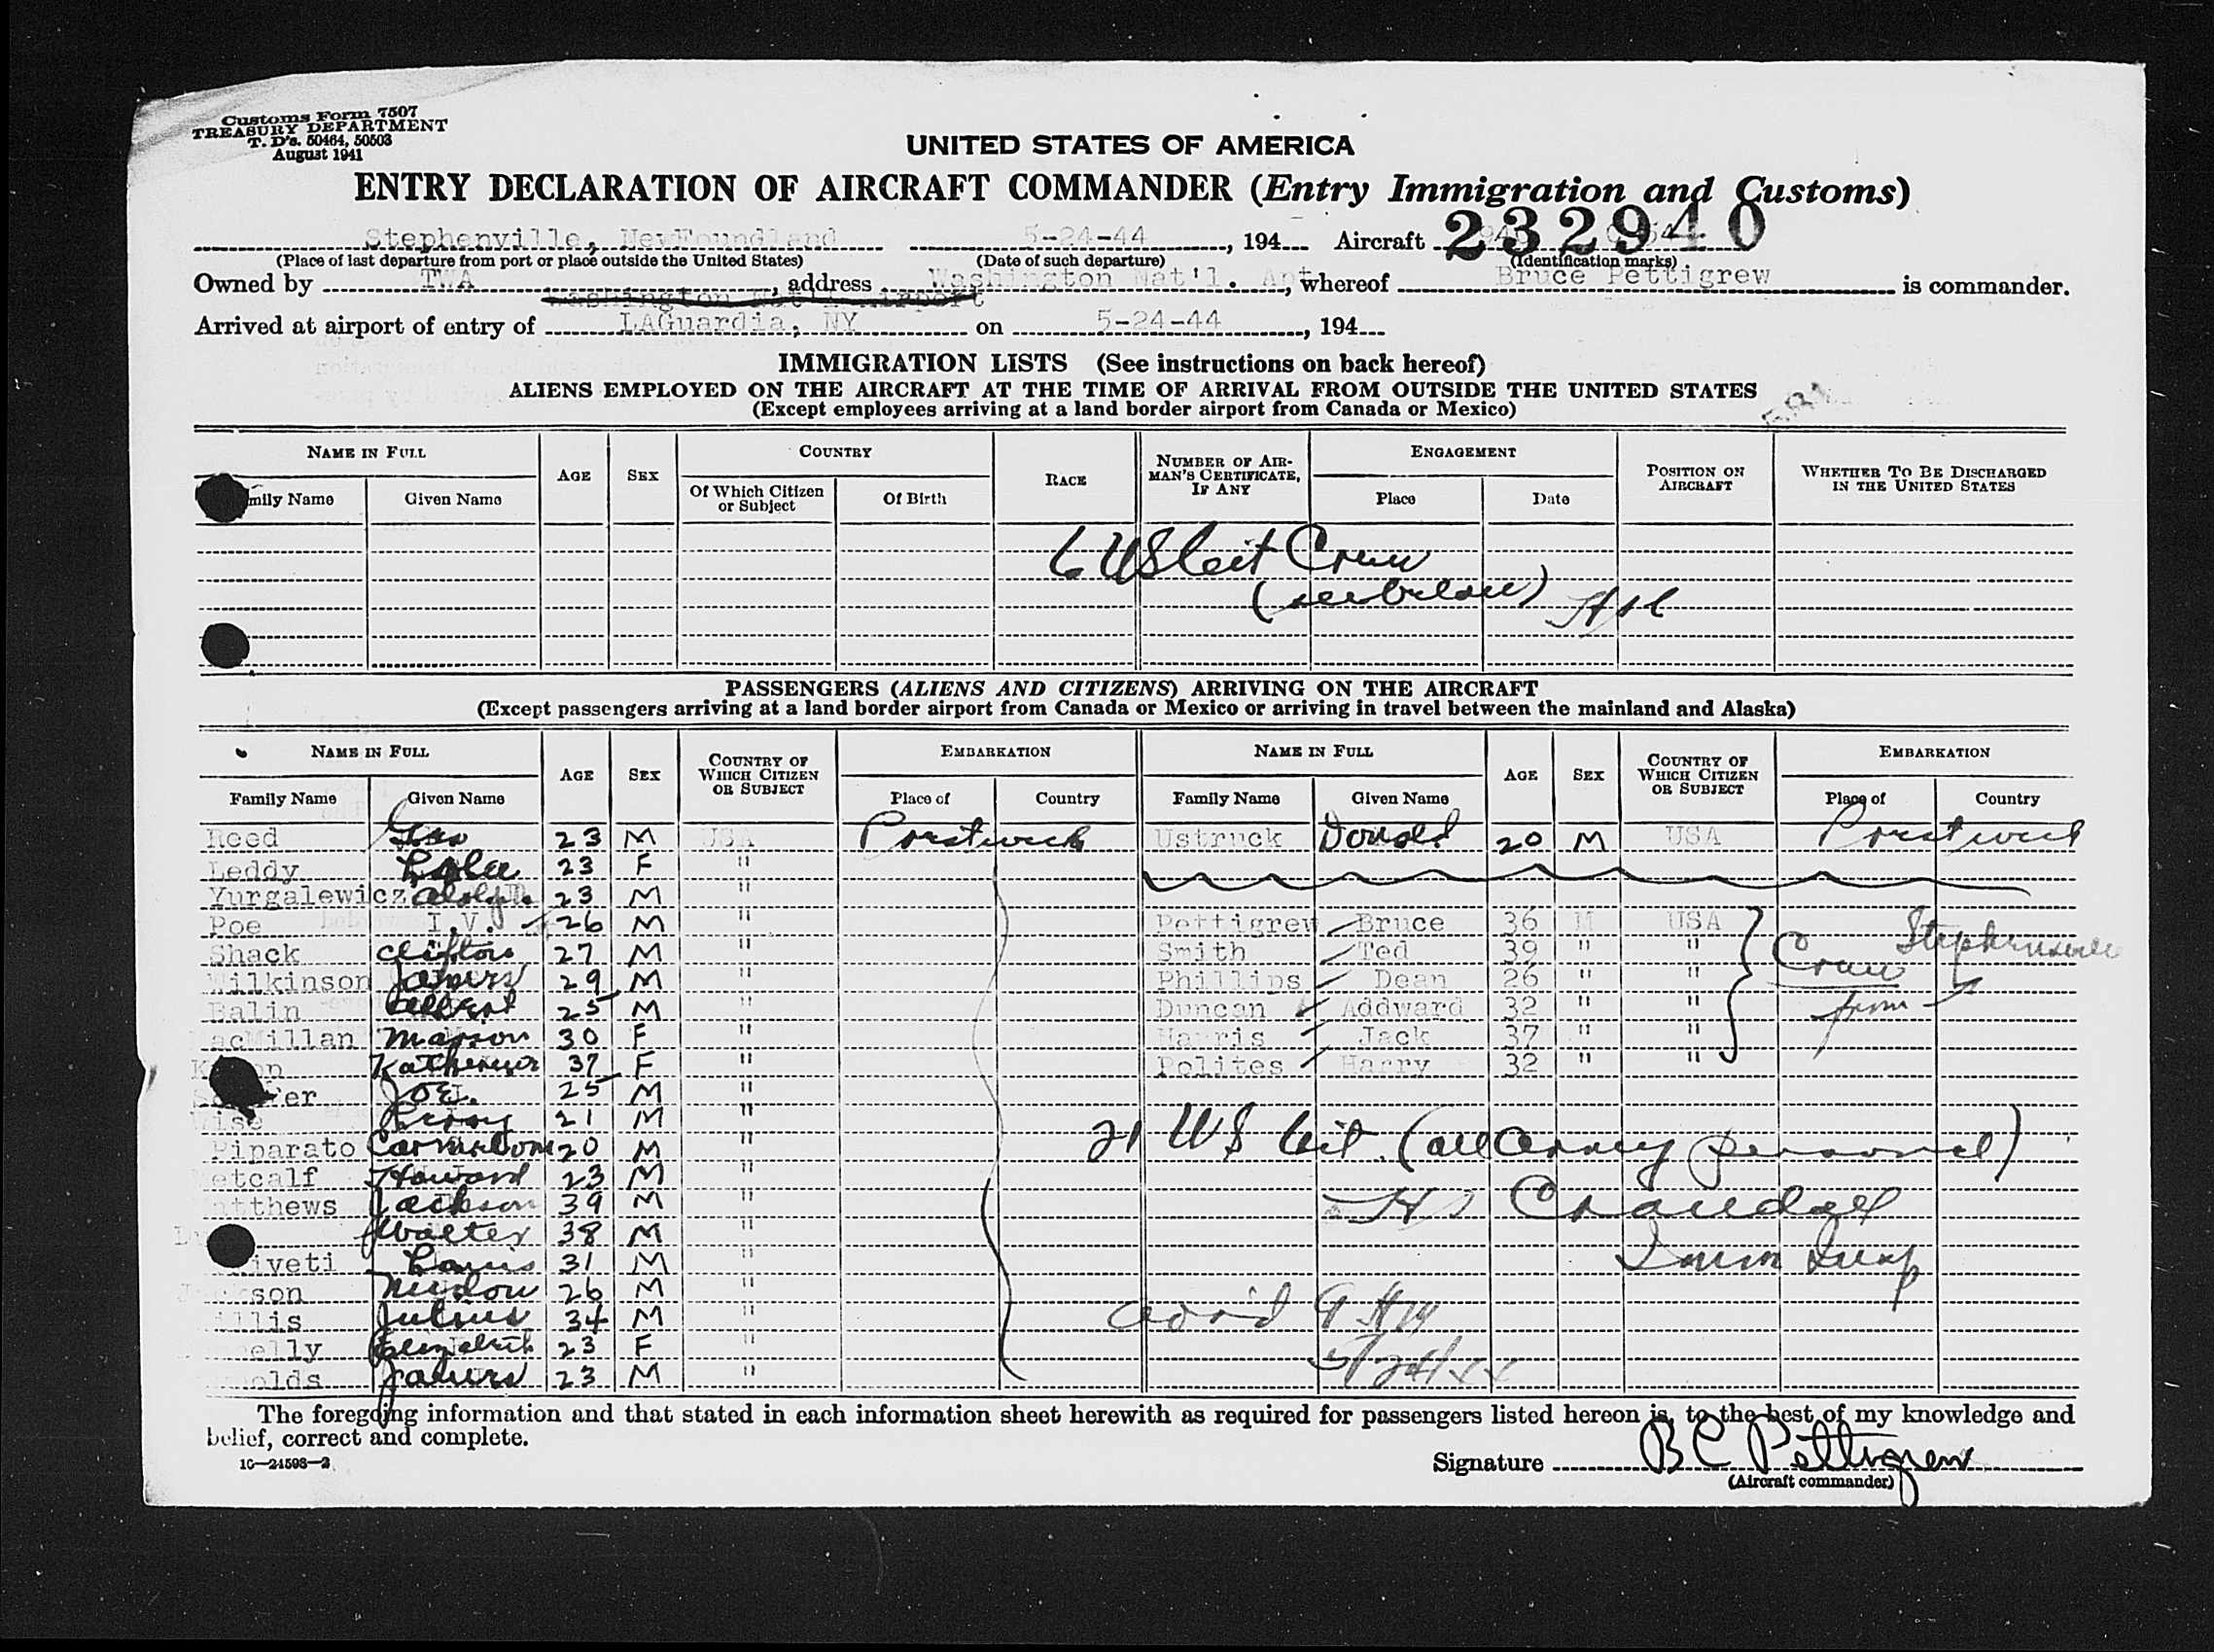 Customs Form 7507
TREASURY DEPARTMENT
T. D's. 50464, 50503
August 1941
UNITED STATES OF AMERICA
ENTRY DECLARATION OF AIRCRAFT COMMANDER (Entry Immigration and Customs)
Stephenville, Newfoundland 5-24-44, 194 Aircraft 232940
(Place of last departure from port or place outside the United States) (Date of such departure) (Identification marks)
Owned by TWA, address Washington Nat'l. Apt, whereof Bruce Pettigrew is commander.
Washington Nat'l Airport
Arrived at airport of entry of LAGuardia, NY on 5-24-44, 194
IMMIGRATION LISTS (See instructions on back hereof)
ALIENS EMPLOYED ON THE AIRCRAFT AT THE TIME OF ARRIVAL FROM OUTSIDE THE UNITED STATES
(Except employees arriving at a land border airport from Canada or Mexico)
NAME IN FULL AGE SEX COUNTRY RACE NUMBER OF AIRMAN'S CERTIFICATE, IF ANY ENGAGEMENT POSITION ON AIRCRAFT WHETHER TO BE DISCHARGED IN THE UNITED STATES
mily Name Given Name Of Which Citizen or Subject Of Birth Place Date
6 US Cit Crew
(see below)
PASSENGERS (ALIENS AND CITIZENS) ARRIVING ON THE AIRCRAFT
(Except passengers arriving at a land border airport from Canada or Mexico or arriving in travel between the mainland and Alaska)
NAME IN FULL AGE SEX COUNTRY OF WHICH CITIZEN OR SUBJECT EMBARKATION NAME IN FULL AGE SEX COUNTRY OF WHICH CITIZEN OR SUBJECT EMBARKATION
Family Name Given Name Place of Country Family Name Given Name Place of Country
Reed Geo 23 M USA Prestwick Ustruck Donald 20 M USA Prestwick
Leddy 23 F "
Yurgalewicz Adolph 23 M "
Poe I.V. 26 M " Pettigrew Bruce 36 M USA
Shack Clifton 27 M " Smith Ted 39 " " Crew Stephenville
Wilkinson James 29 M " Phillips Dean 26 " "
Balin Albert 25 M " Duncan Addward 32 " " from
acMillan Marion 30 F " Harris Jack 37 " "
Katherine 37 F " Polites Harry 32 " "
er Joe. 25 M "
ise Leroy 21 M "
Piparato 20 M " 21 US Cit. (all Army personnel)
etcalf Howard 23 M "
atthews Jackson 39 M " Crandall
Walter 38 M " Immn Insp
iveti Louis 31 M "
son 26 M "
illis Julius 34 M "
elly Elizabeth 23 F " 5/24/44
olds James 23 M "
The foregoing information and that stated in each information sheet herewith as required for passengers listed hereon is, to the best of my knowledge and
belief, correct and complete.
16—24598—2
Signature B C Pettigrew
(Aircraft commander)